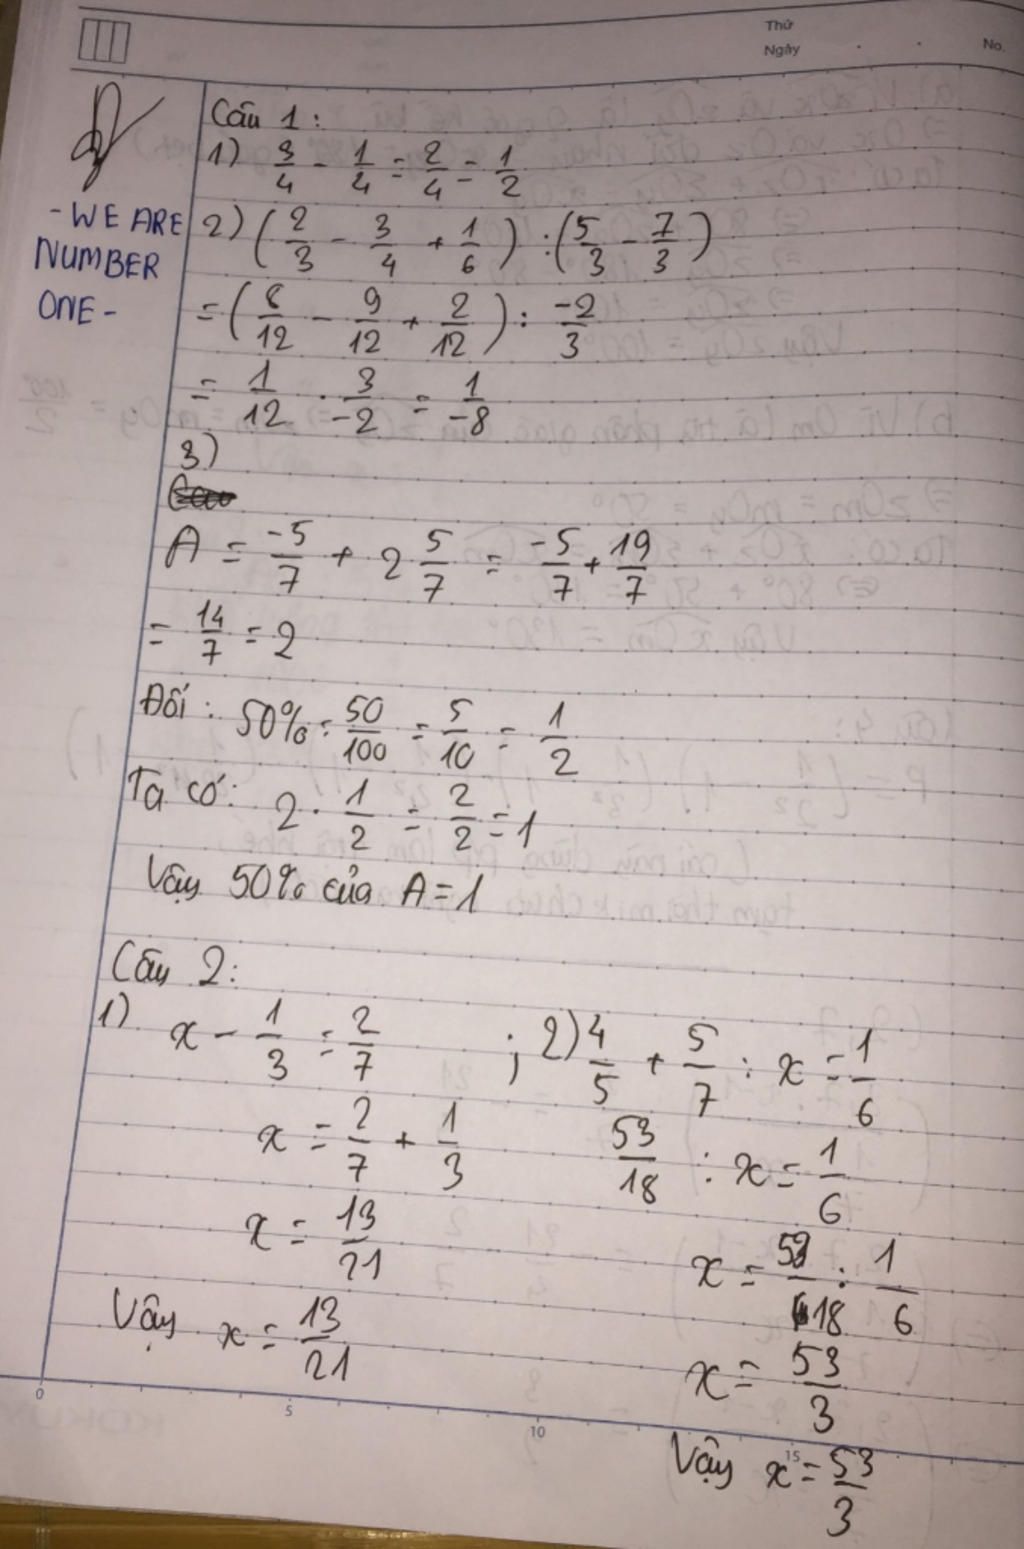 Thứ
Ngày
No.
- WE ARE
NUMBER
ONE -
Câu 1:
1) 3/4 - 1/4 = 2/4 = 1/2
2) (2/3 - 3/4 + 1/6) : (5/3 - 7/3)
= (8/12 - 9/12 + 2/12) : -2/3
= 1/12 . 3/-2 = 1/-8
3)
A = -5/7 + 2 5/7 = -5/7 + 19/7
= 14/7 = 2
Đổi: 50% = 50/100 = 5/10 = 1/2
Ta có: 2 . 1/2 = 2/2 = 1
Vậy 50% của A = 1
Câu 2:
1) x - 1/3 = 2/7 ; 2) 4/5 + 5/7 : x = 1/6
x = 2/7 + 1/3 53/18 : x = 1/6
x = 13/21 x = 53/18 : 1/6
Vậy x = 13/21 x = 53/3
Vậy x = 53/3
0 5 10 15